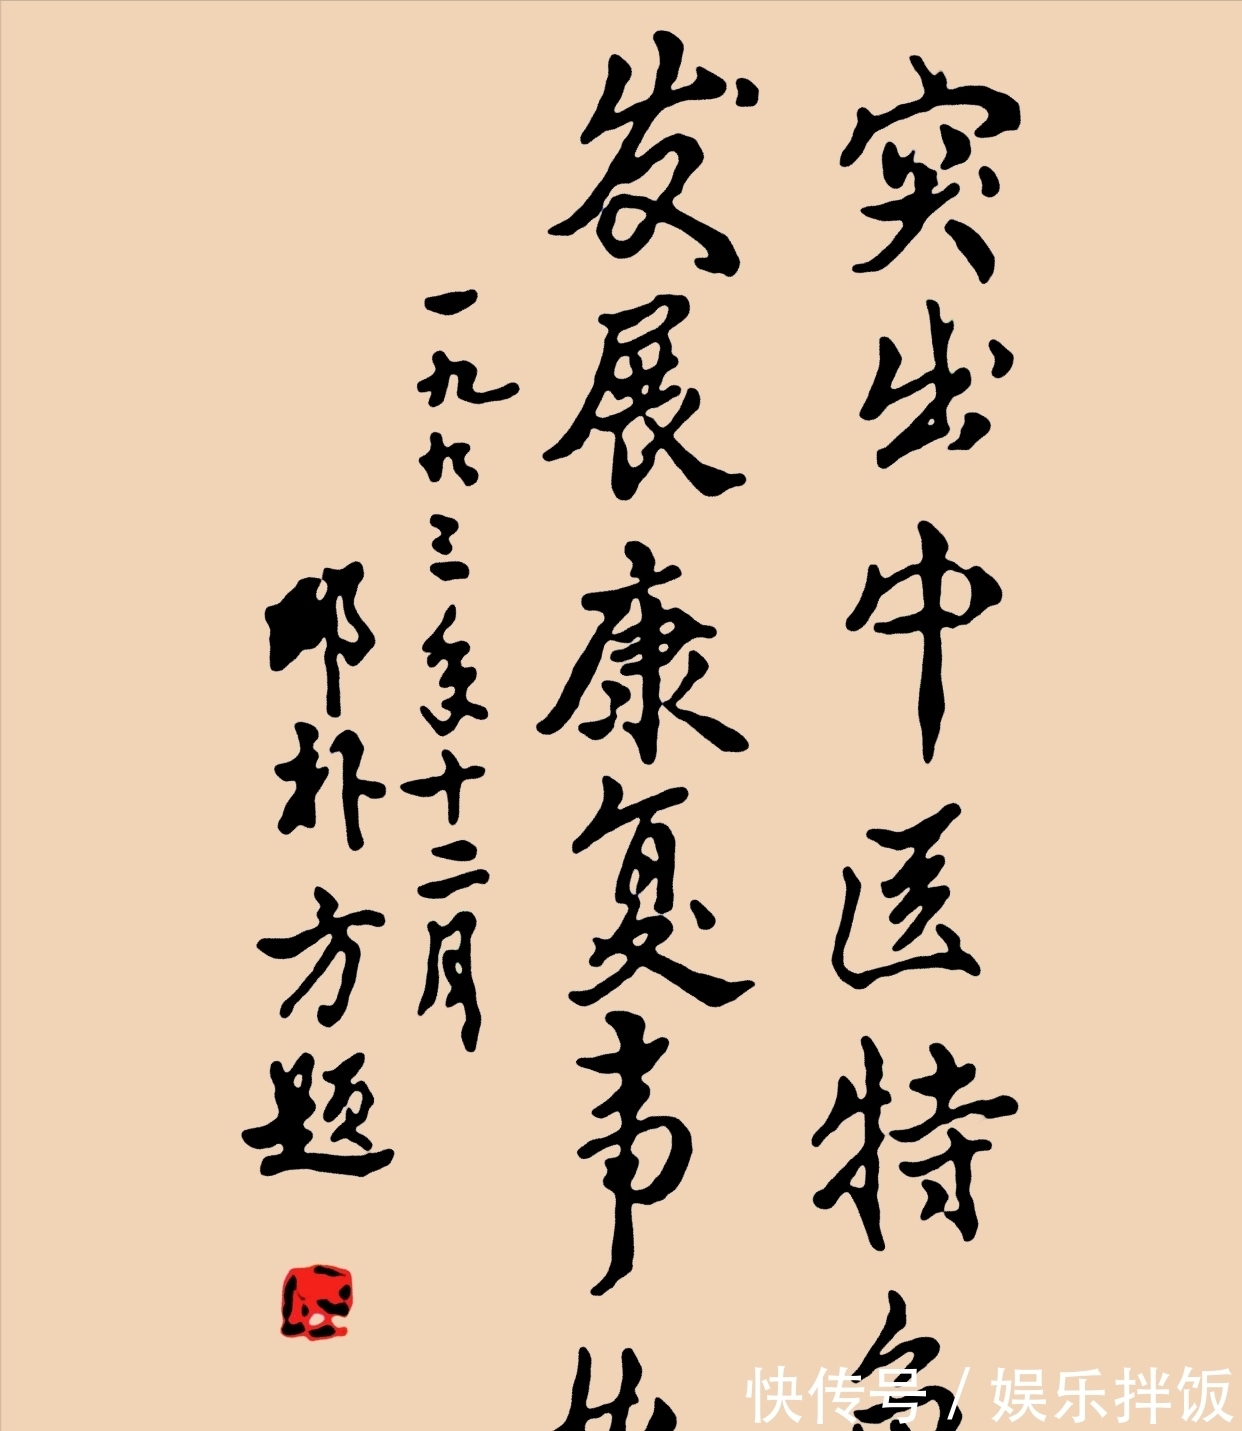 突出中医特色
发展康复事
一九九三年十二月
邓朴方题
快传号/娱乐拌饭